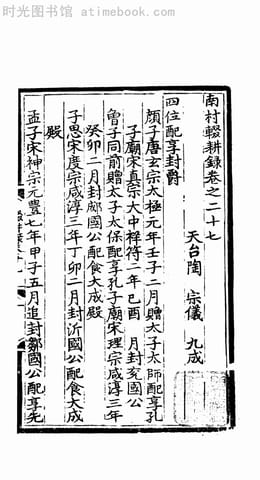 时光图书馆 www.atimebook.com
南村輟耕錄卷之二十七
天台陶 宗儀 九成
四位配享封爵
顔子唐玄宗太極元年壬子二月贈太子太師配享孔
子廟宋真宗大中祥符二年己酉 月封兖國公
曾子同前贈太子太保配享孔子廟宋理宗咸淳三年
癸卯二月封郕國公配食大成殿
子思宋度宗咸淳三年丁卯二月封沂國公配食大成
殿
孟子宋神宗元豐七年甲子五月追封鄒國公配享先